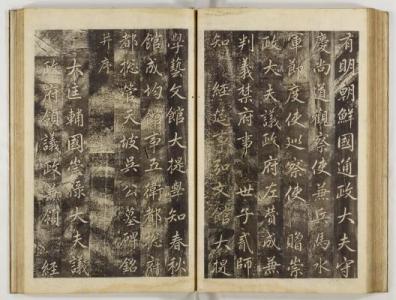 有明朝鮮國通政大夫守
慶尚道觀察使兼兵馬水
軍節度使巡察使 贈崇
政大夫議政府左贊成兼
判義禁府事 世子貳師
知 經筵事弘文館大提
學藝文館大提學知春秋
館成均館事五衛都摠府
都摠管天坡吳公墓碑銘
并序
大匡輔國崇祿大夫議
政府領議政兼領 經